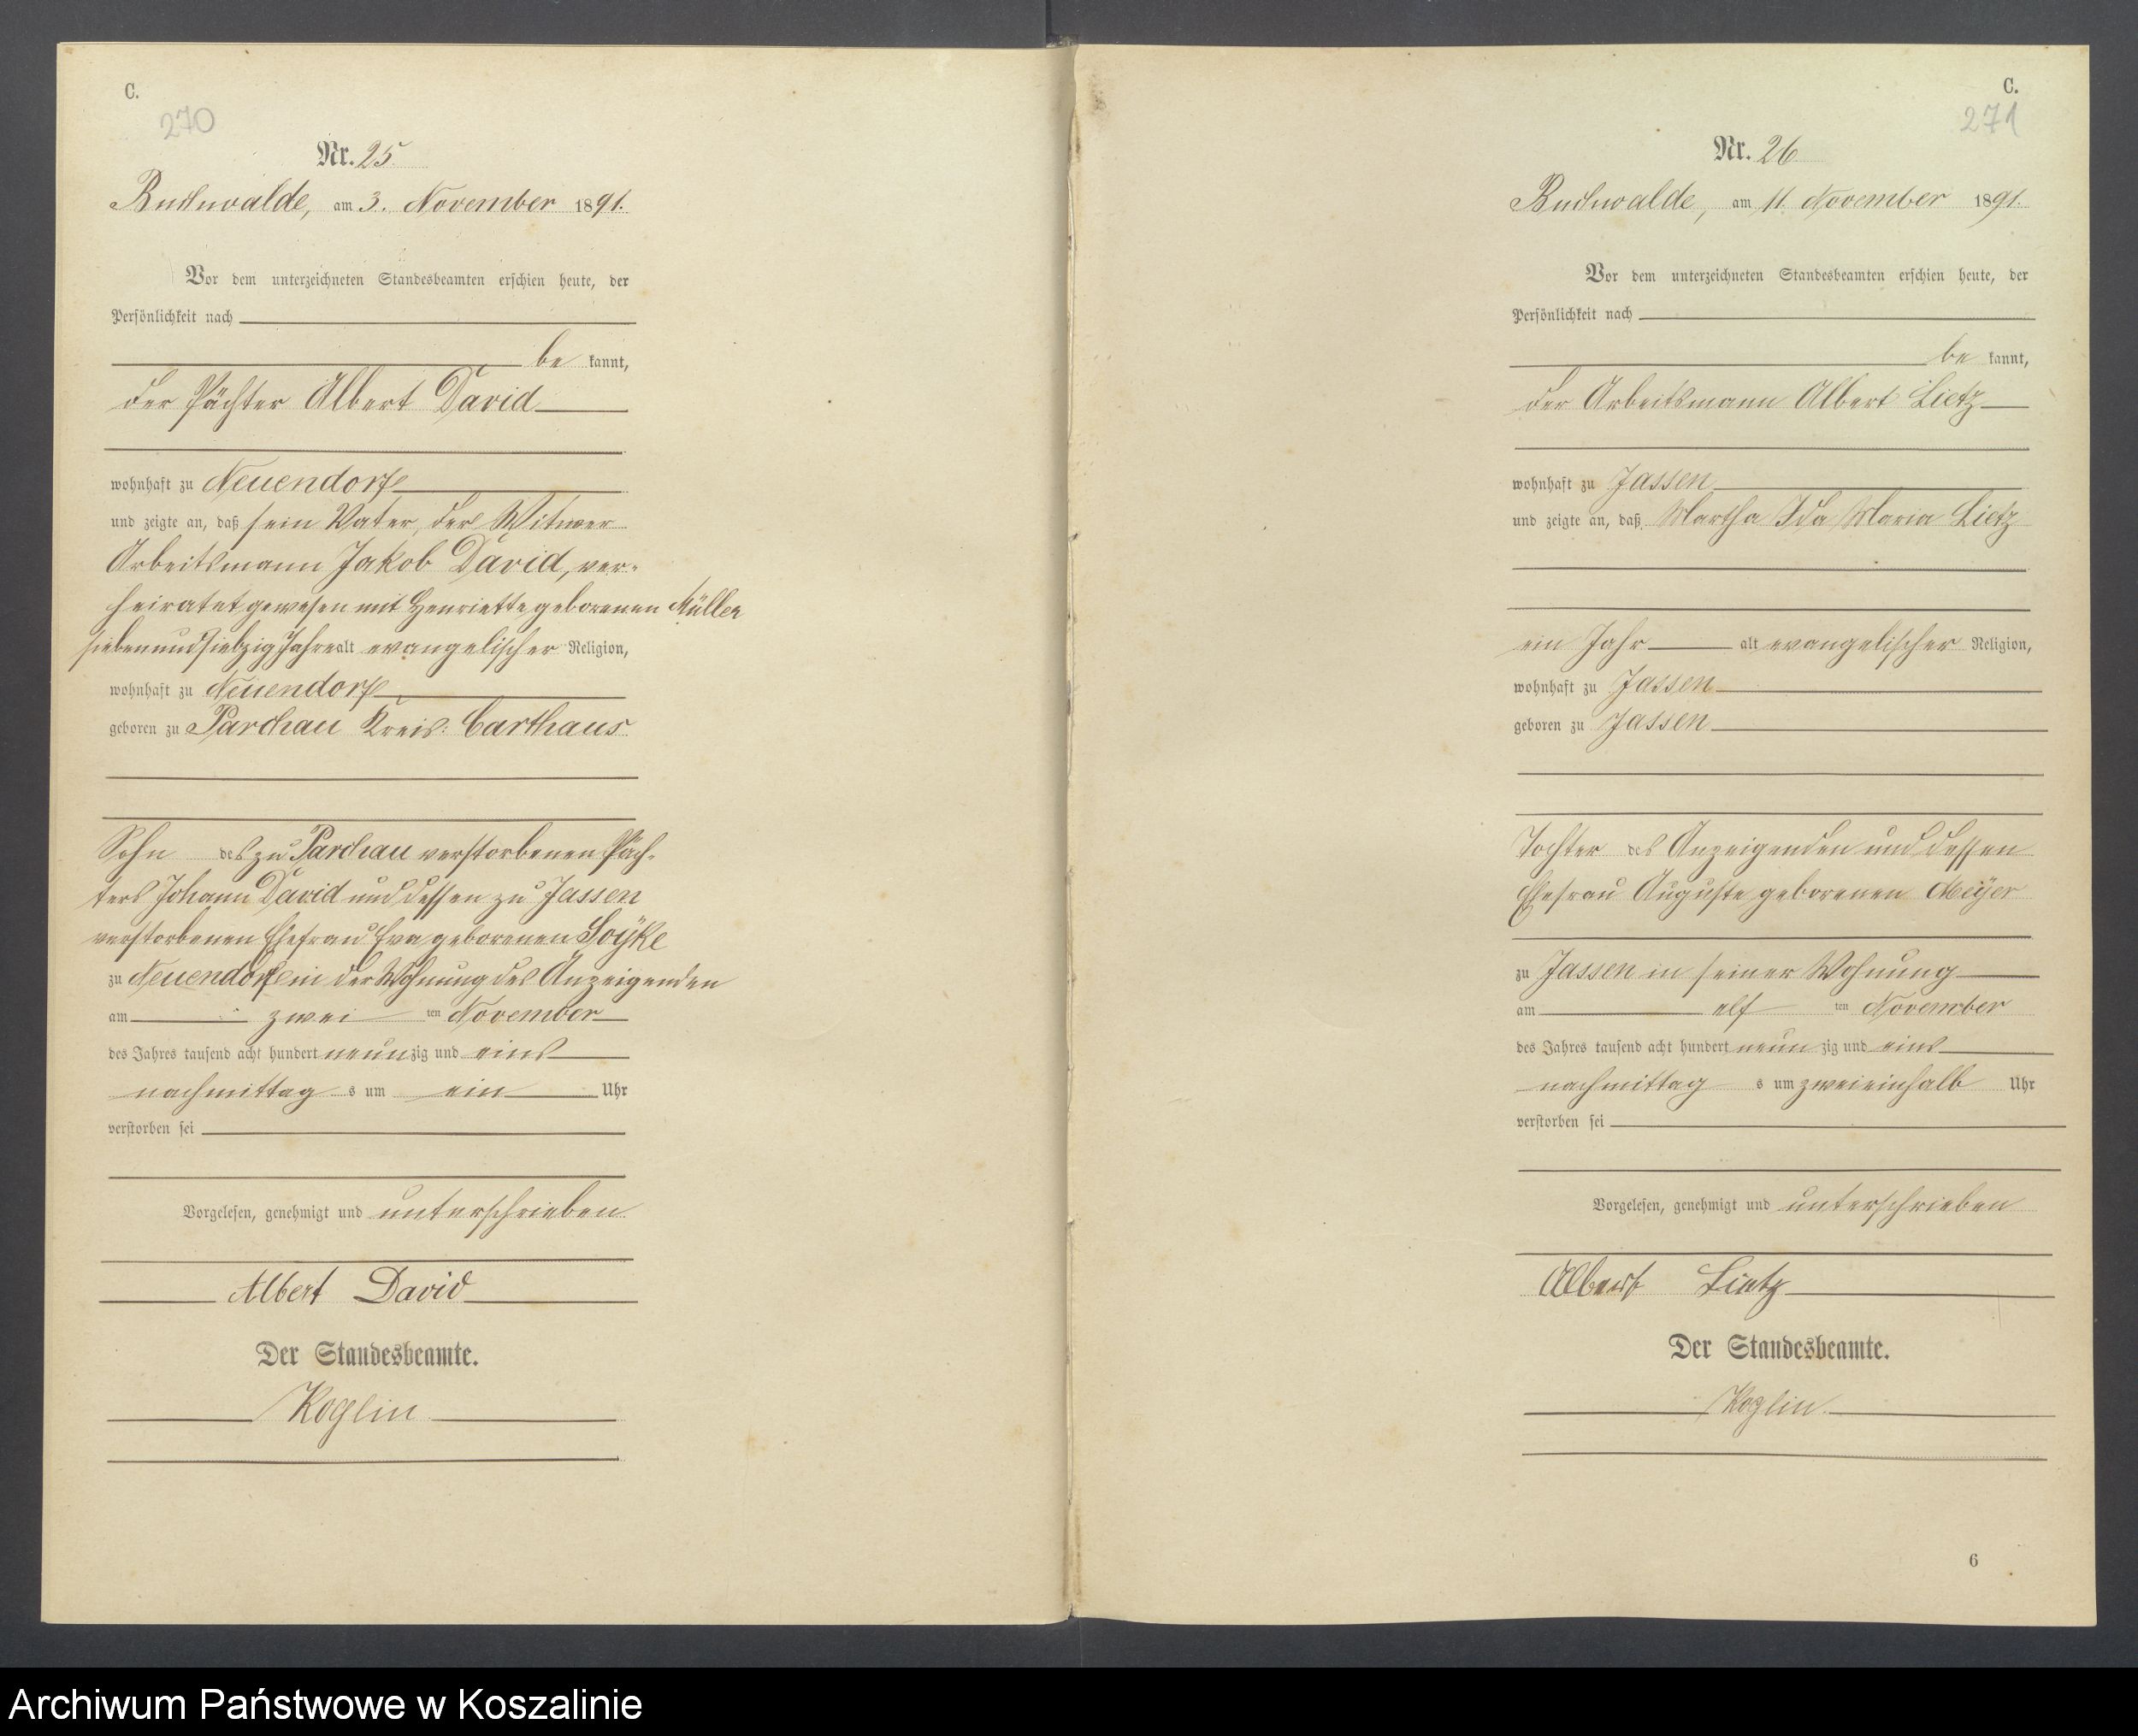 C.
270
Nr. 25.
Buchwalde, am 3. November 1891.
Vor dem unterzeichneten Standesbeamten erschien heute, der
Persönlichkeit nach
be kannt,
der Pächter Albert David
wohnhaft zu Neuendorf
und zeigte an, daß sein Vater, der Witwer
Arbeitsmann Jakob David, ver-
heiratet gewesen mit Henriette geborenen Müller
siebenundsiebzig Jahre alt evangelischer Religion,
wohnhaft zu Neuendorf
geboren zu Parchau Kreis: Carthaus
Sohn des zu Parchau verstorbenen Päch-
ters Johann David und dessen zu Jassen
verstorbenen Ehefrau Eva geborenen Soyke
zu Neuendorf in der Wohnung des Anzeigenden
am zwei ten November
des Jahres tausend acht hundert neunzig und eins
nachmittag s um ein Uhr
verstorben sei
Vorgelesen, genehmigt und unterschrieben
Albert David
Der Standesbeamte.
Koglin
C.
271
Nr. 26
Buchwalde, am 11. November 1891.
Vor dem unterzeichneten Standesbeamten erschien heute, der
Persönlichkeit nach
be kannt,
der Arbeitsmann Albert Lietz
wohnhaft zu Jassen
und zeigte an, daß Martha Ida Maria Lietz
ein Jahr alt evangelischer Religion,
wohnhaft zu Jassen
geboren zu Jassen
Tochter des Anzeigenden und dessen
Ehefrau Auguste geborenen Meÿer
zu Jassen in seiner Wohnung
am elf ten November
des Jahres tausend acht hundert neun zig und eins
nachmittag s um zweieinhalb Uhr
verstorben sei
Vorgelesen, genehmigt und unterschrieben
Albert Lietz
Der Standesbeamte.
Koglin.
6
Archiwum Państwowe w Koszalinie